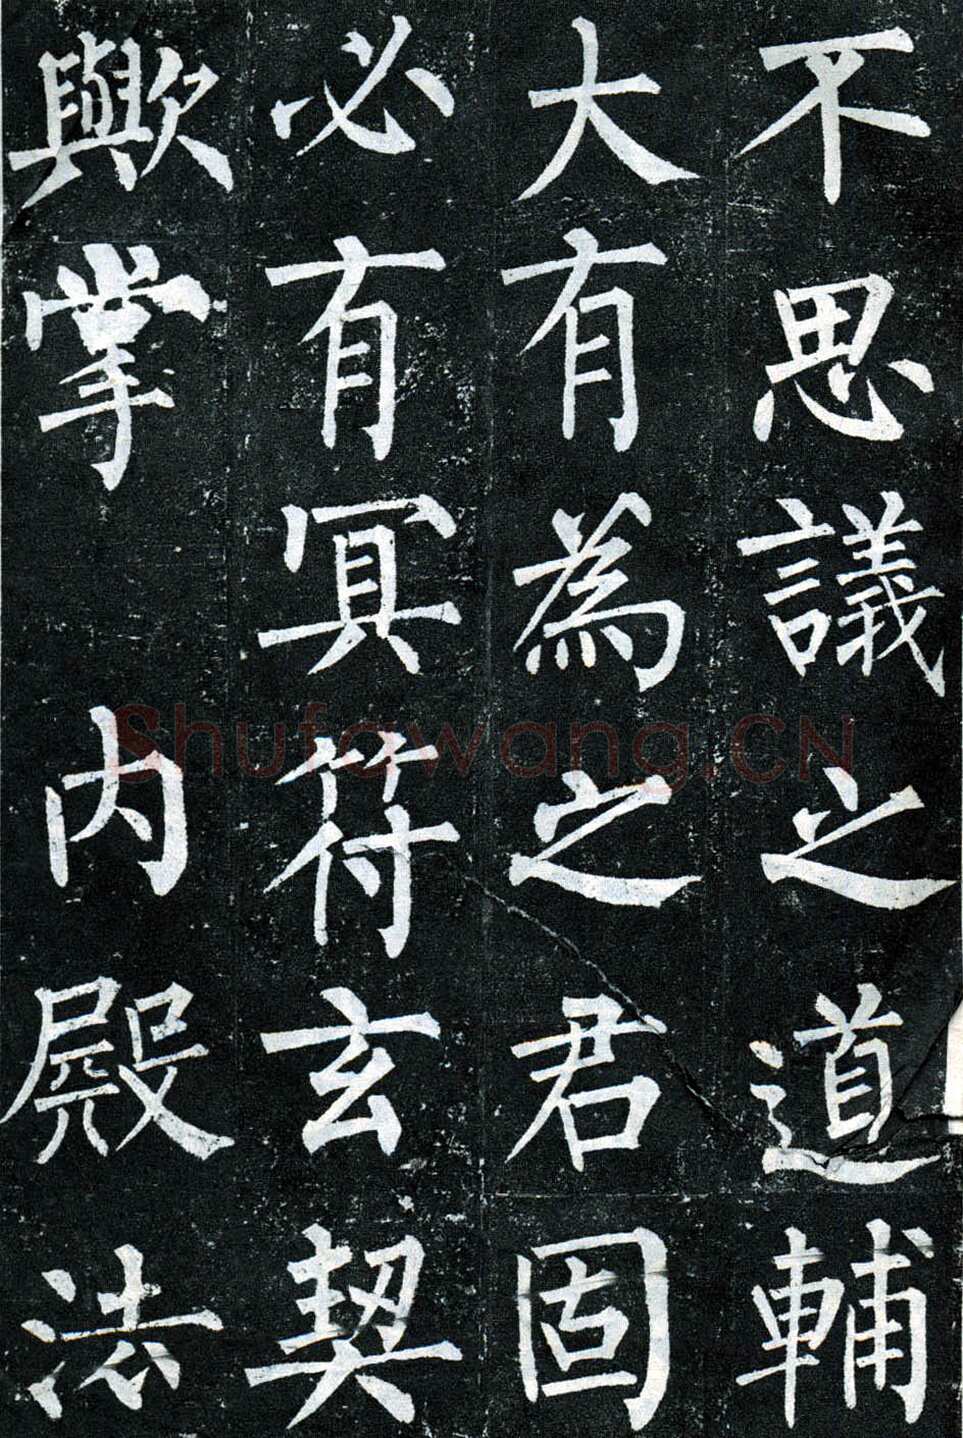 不思議之道輔
大有為之君固
必有冥符玄契
歟掌内殿法
Shufawang.CN